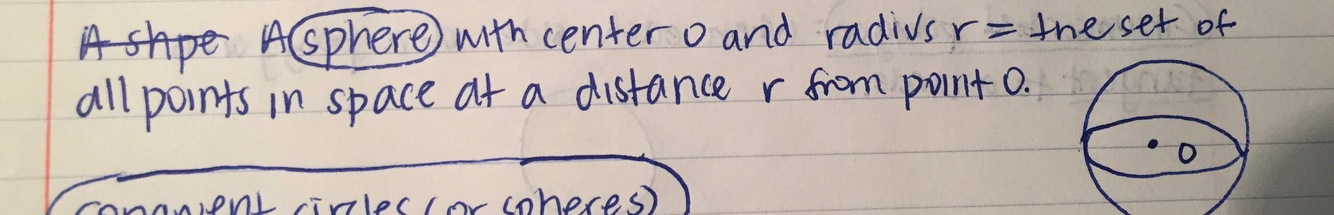 A shpe A sphere with center O and radius r = the set of
all points in space at a distance r from point O.
O
circles (or spheres)